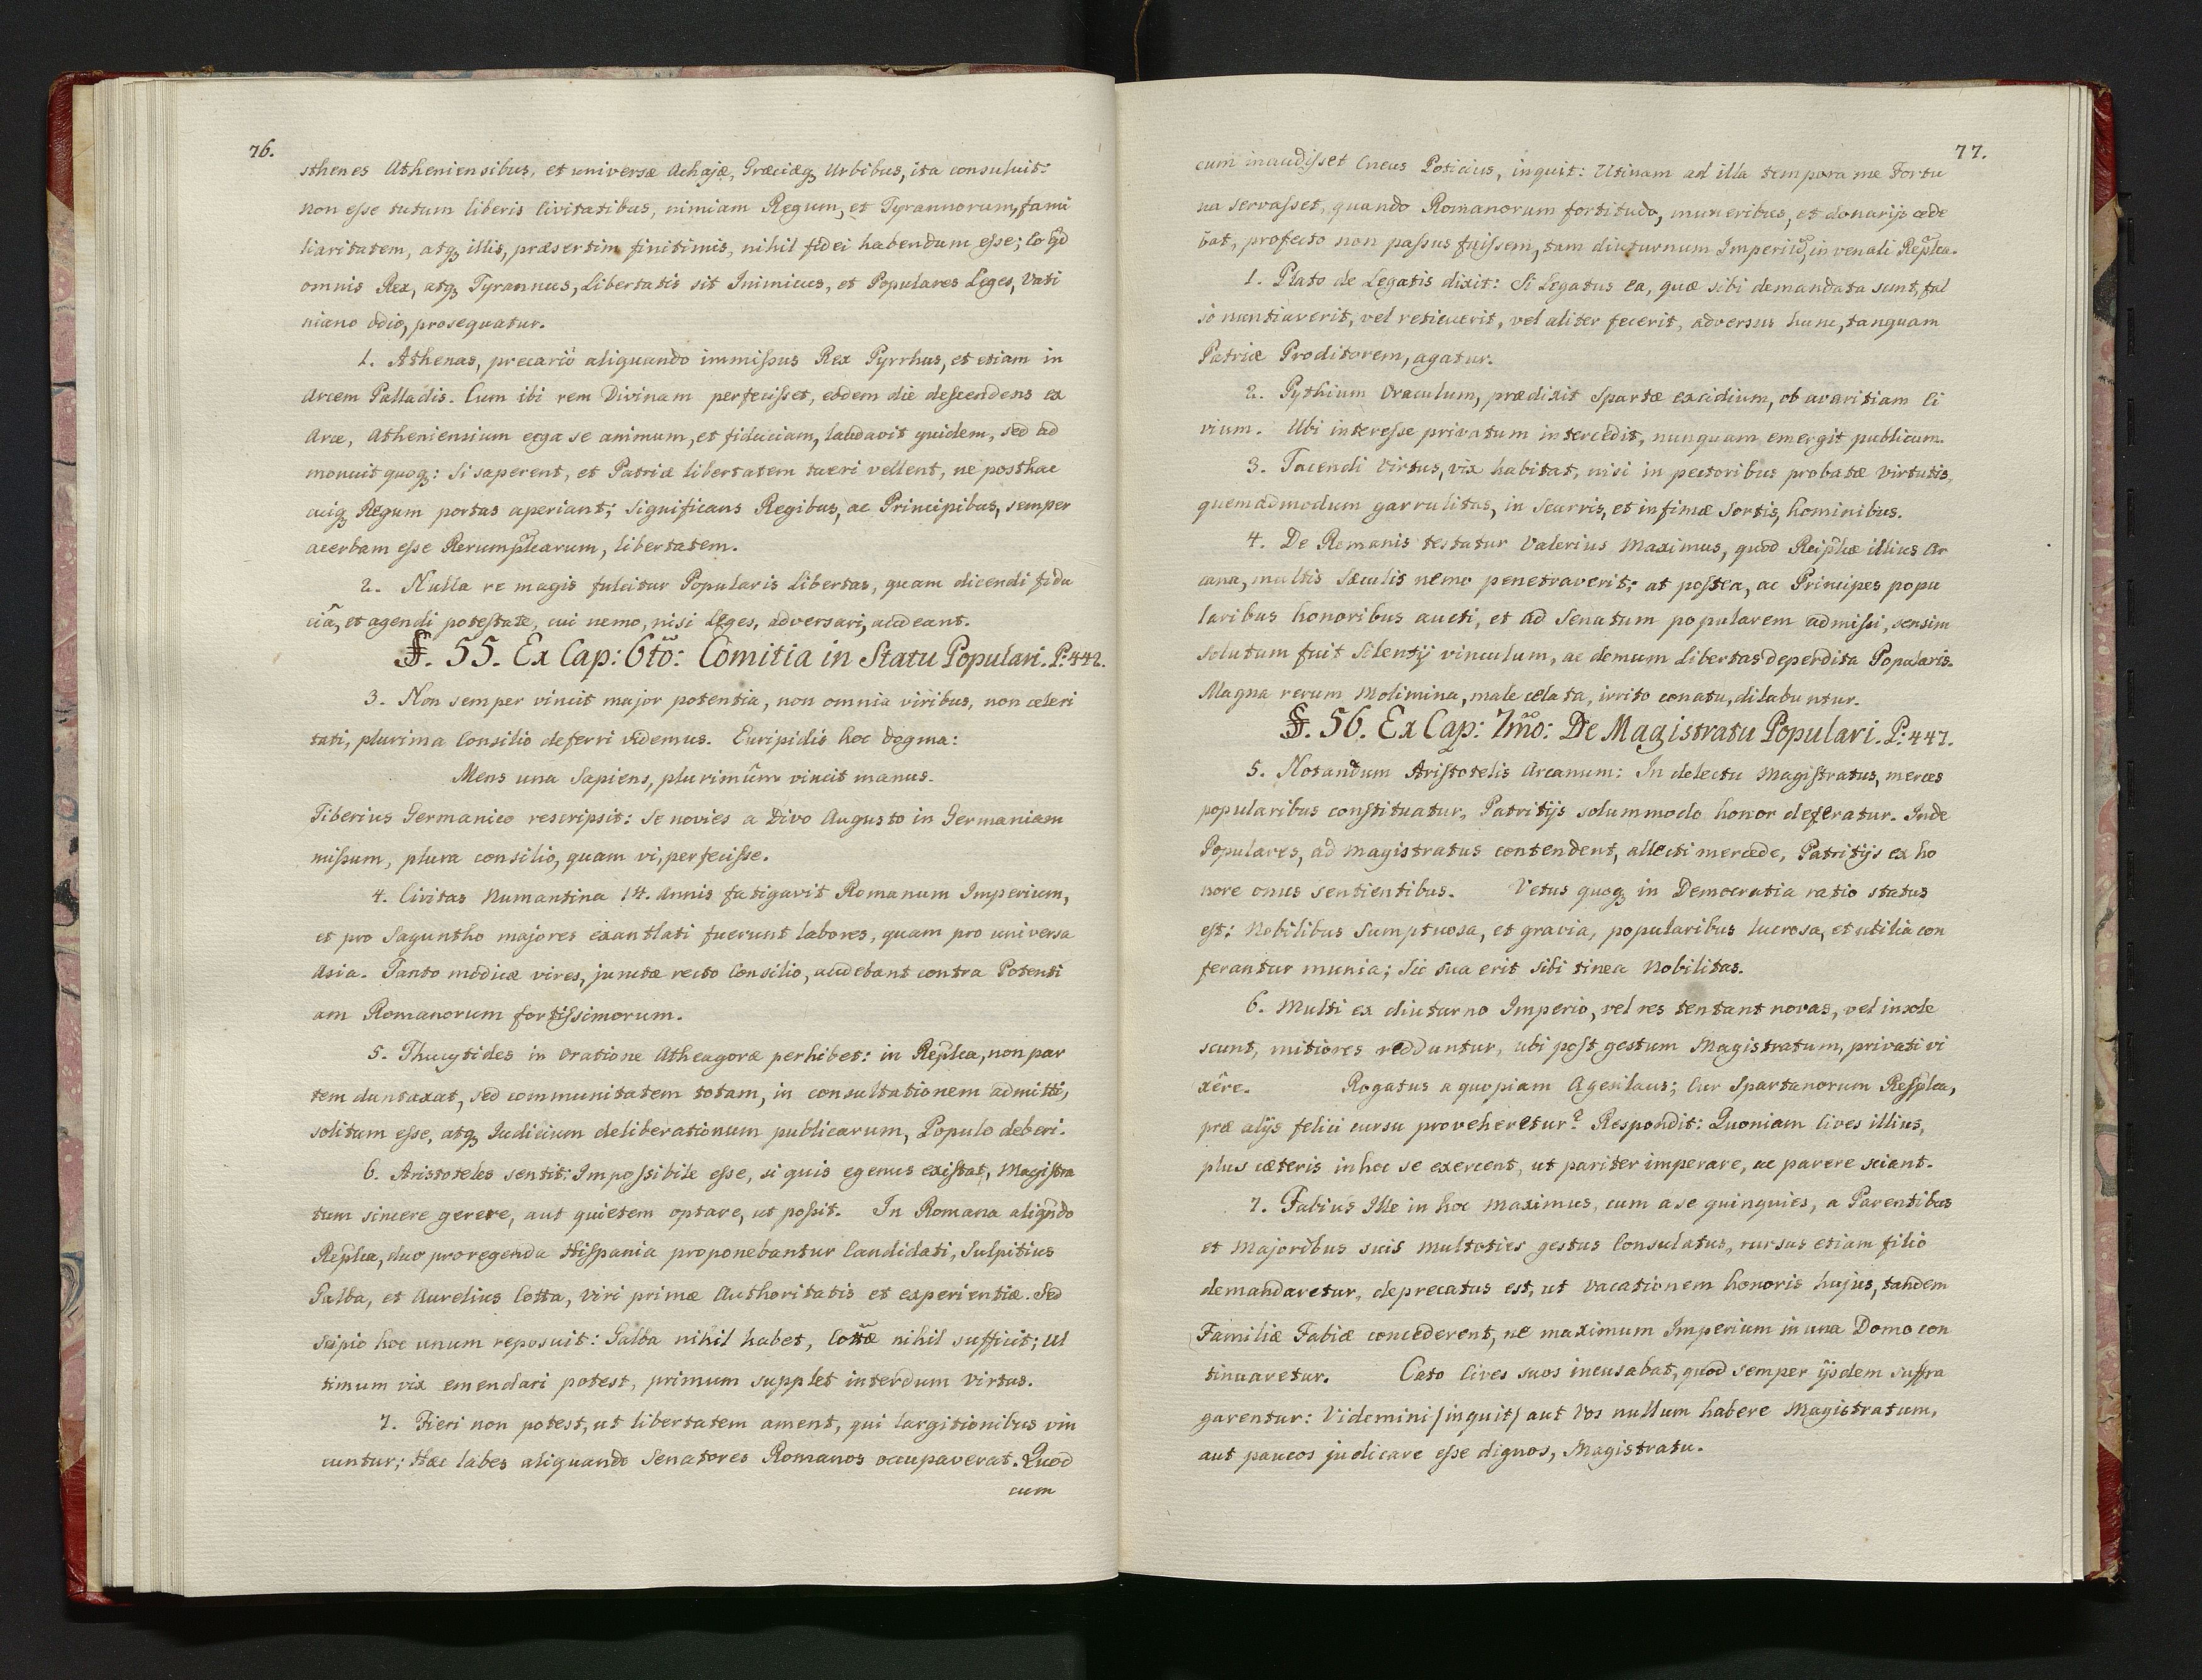 76.
sthenes Atheniensibus, et universæ Achajæ, Græciæq; Urbibus, ita consuluit:
non eſse tutum liberis Civitatibus, nimiam Regum, et Tyrannorum, fami
liaritatem, atq; illis, præsertim finitimis, nihil fidei habendum eſse; Eo qd
omnis Rex, atq; Tyrannus, Libertatis sit Inimicus, et Populares Leges, Vati
niano odio, prosequatur.
1. Athenas, precario aliquando immiſsus Rex Pyrrhus, et etiam in
Arcem Palladis. Cum ibi rem Divinam perfeciſset, eodem die deſcendens ex
Arce, Atheniensium erga se animum, et fiduciam, laudavit quidem, sed ad
monuit quoq;: Si saperent, et Patriæ libertatem tueri vellent, ne posthac
cuiq; Regum portas aperiant; Significans Regibus, ac Principibus, semper
acerbam eſse Rerumplcarum, libertatem.
2. Nulla re magis fulcitur Popularis Libertas, quam dicendi fidu
ciã, et agendi poteſtate, cui nemo, nisi Leges, adversari, audeant.
§. 55. Ex Cap: 6to: Comitia in Statu Populari. P: 442.
3. Non semper vincit major potentia, non omnia viribus, non celeri
tati, plurima Consilio deferri videmus. Euripidis hoc dogma:
Mens una Sapiens, plurimûm vincit manus.
Tiberius Germanico rescripsit: Se novies a Divo Augusto in Germaniam
miſsum, plura consilio, quam vi, perfeciſse.
4. Civitas Numantina 14. Annis fatigavit Romanum Imperium,
et pro Saguntho majores exantlati fuerunt labores, quam pro universa
Asia. Tanto modicæ vires, junctæ recto Consilio, audebant contra Potenti
am Romanorum fortiſsimorum.
5. Thucytides in Oratione Atheagoræ perhibet: in Replca, non par
tem duntaxat, sed communitatem totam, in consultationem admitti,
solitam eſse, atq; Judicium deliberationum publicarum, Populo deberi.
6. Aristoteles sentit: Impoſsibile eſse, si quis egenus exiſtat, Magiſtra
tum sincere gerere, aut quietem optare, ut poſsit. In Romana aliqñdo
Replca, duo pro regenda Hiſpania proponebantur Candidati, Sulpitius
Galba, et Aurelius Cotta, Viri primæ Authoritatis et experientiæ. Sed
Scipio hoc unum reposuit: Galba nihil habet, Cottæ nihil sufficit; Ul
timum vix emendari potest, primum supplet interdum Virtus.
7. Fieri non potest, ut libertatem ament, qui largitionibus vin
cuntur; Hæc labes aliquando Senatores Romanos occupaverat. Quod
cum
77.
cum inaudiſset Cneus Poticius, inquit: Utinam ad illa tempora me Fortu
na Servaſset, quando Romanorum fortitudo, muneribus, et donarijs cede
bat, profecto non paſsus fuiſsem, tam diuturnum Imperiũ, in venali Replca.
1. Plato de Legatis dixit: Si Legatus ea, quæ sibi demandata sunt, fal
so nuntiaverit, vel reticuerit, vel aliter fecerit, adversus hunc, tanquam
Patriæ Proditorem, agatur.
2. Pythium Oraculum, prædixit Spartæ excidium, ob avaritiam Ci
vium. Ubi intereſse privatum intercedit, nunquam emergit publicum.
3. Tacendi Virtus, vix habitat, nisi in pectoribus probatæ Virtutis,
quemadmodum garrulitas, in Scurris, et infimæ Sortis, hominibus.
4. De Romanis testatur Valerius Maximus, quod Reiplcæ illius Ar
cana, multis Sæculis nemo penetraverit; at poſtea, ac Principes popu
laribus honoribus aucti, et ad Senatum popularem admiſsi, sensim
solutum fuit Silentij vinculum, ac demum Libertas deperdita Popularis.
Magna rerum Molimina, male celata, irrito conatu, dilabuntur.
§. 56. Ex Cap: 7mo: De Magistratu Populari. P: 447.
5. Notandum Ariſtotelis Arcanum: In delectu Magiſtratus, merces
popularibus conſtituatur, Patritijs solummodo honor deferatur. Inde
Populares, ad magistratus contendent, allecti mercede, Patritijs ex ho
nore onus sentientibus. Vetus quoq; in Democratia ratio status
eſt: Nobilibus Sumptuosa, et gravia, popularibus lucrosa, et utilia con
ferantur munia; Sic sua erit Sibi tinea Nobilitas.
6. Multi ex diuturno Imperio, vel res tentant novas, vel insole
scunt, mitiores redduntur, ubi poſt gestum Magistratum, privati vi
xêre. Rogatus a quopiam Agesilaus; Cur Spartanorum Reſplca,
præ alijs felici cursu proveheretur? Respondit: Quoniam Cives illius,
plus cæteris in hoc se exercent, ut pariter imperare, ac parere sciant.
7. Fabius Ille in hoc Maximus, cum a se quinquies, a Parentibus
et Majoribus suis multoties gestus Consulatus, rursus etiam filio
demandaretur, deprecatus est, ut Vacationem honoris hujus, tandem
Familiæ Fabiæ concederent, ne maximum Imperium in una Domo con
tinuaretur. Cato Cives suos incusabat, quod semper ijsdem suffra
garentur: Videmini /inquit/ aut Vos nullum habere Magistratum,
aut paucos judicare eſse dignos, Magistratu.